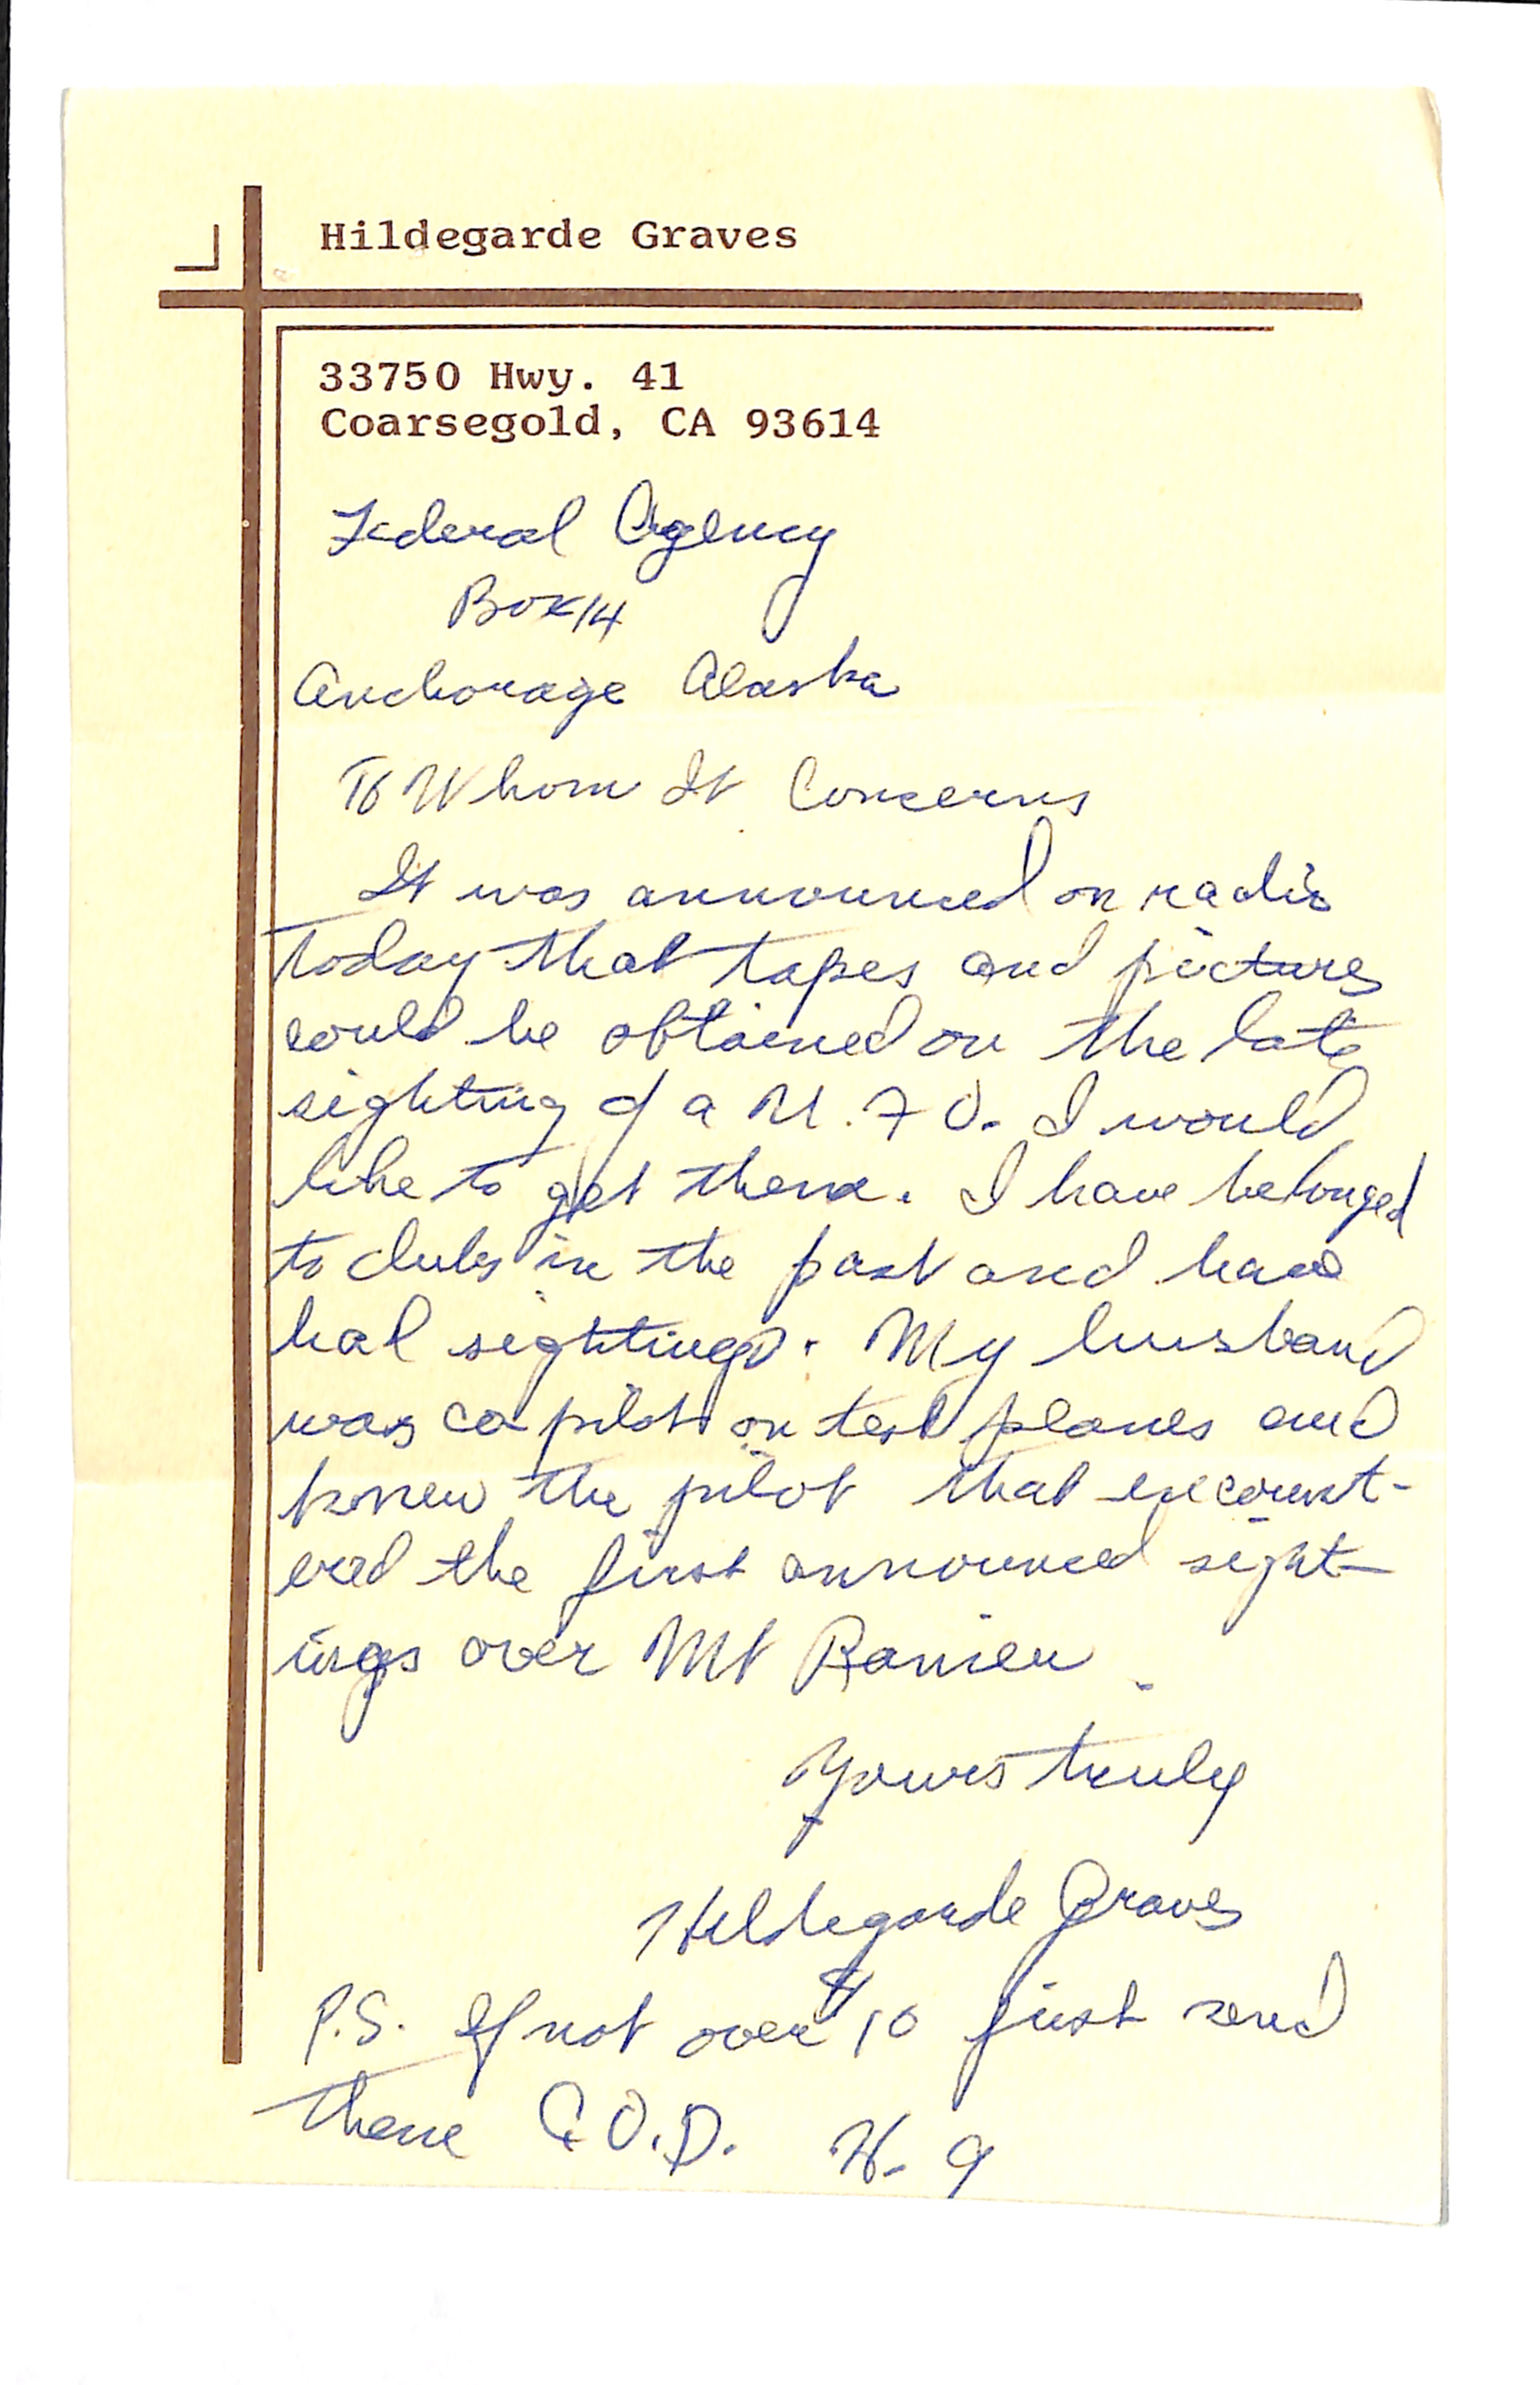 Hildegarde Graves
33750 Hwy. 41
Coarsegold, CA 93614
Federal Agency
Box 14
Anchorage Alaska
To Whom It Concerns
It was announced on radio
today that tapes and pictures
could be obtained on the late
sighting of a U.F O. I would
like to get them. I have belonged
to clubs in the past and have
had sightings. My husband
was co pilot on test planes and
knew the pilot that encount-
ered the first announced sight-
ings over Mt Ranier.
Yours truly
Hildegarde Graves
P.S. If not over $10 just send
them C O.D. H. G